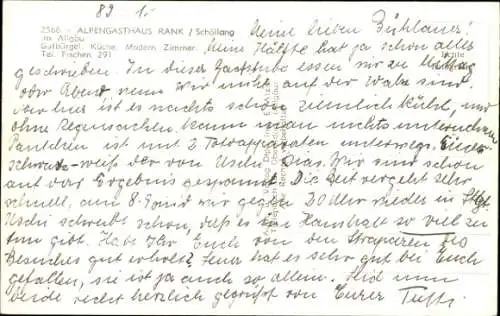 89 1.-
2566 - ALPENGASTHAUS RANK / Schöllang
im Allgäu
Gutbürgel. Küche. Modern. Zimmer.
Tel. Fischen 291
Meine lieben Bühlauer!
Meine Hälfte hat ja schon alles
geschrieben. In dieser Gaststube essen wir zu Mittag
oder Abend wenn wir nicht auf der Walze sind.
hier ist es nachts schon ziemlich kühl, und
ohne Regensachen kann man nichts unternehmen.
ist mit 2 Fotoapparaten unterwegs. Einer
schwarz-weiß der von Uschi Dias. Wir sind schon
auf das Ergebnis gespannt. Die Zeit vergeht sehr
schnell, am 8. sind wir gegen 20 Uhr wieder in Stgt.
Uschi schreibt schon, daß es im Haushalt so viel zu
tun gibt. Habt Ihr Euch von den Strapazen des
Besuches gut erholt? Ihnen hat es sehr gut bei Euch
gefallen, sie ist ja auch so allein. Seid nun
beide recht herzlich gegrüßt von Eurer Tuffi